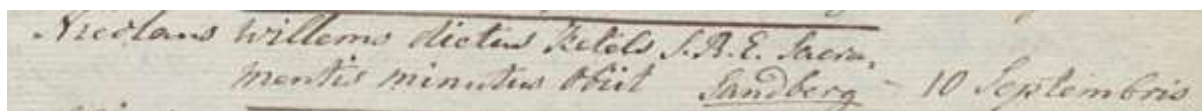 Nicolaus Willems dictus Ketels S.R.E. Sacra,
mentis minutus Obiit Sandberg - 10 Septembris